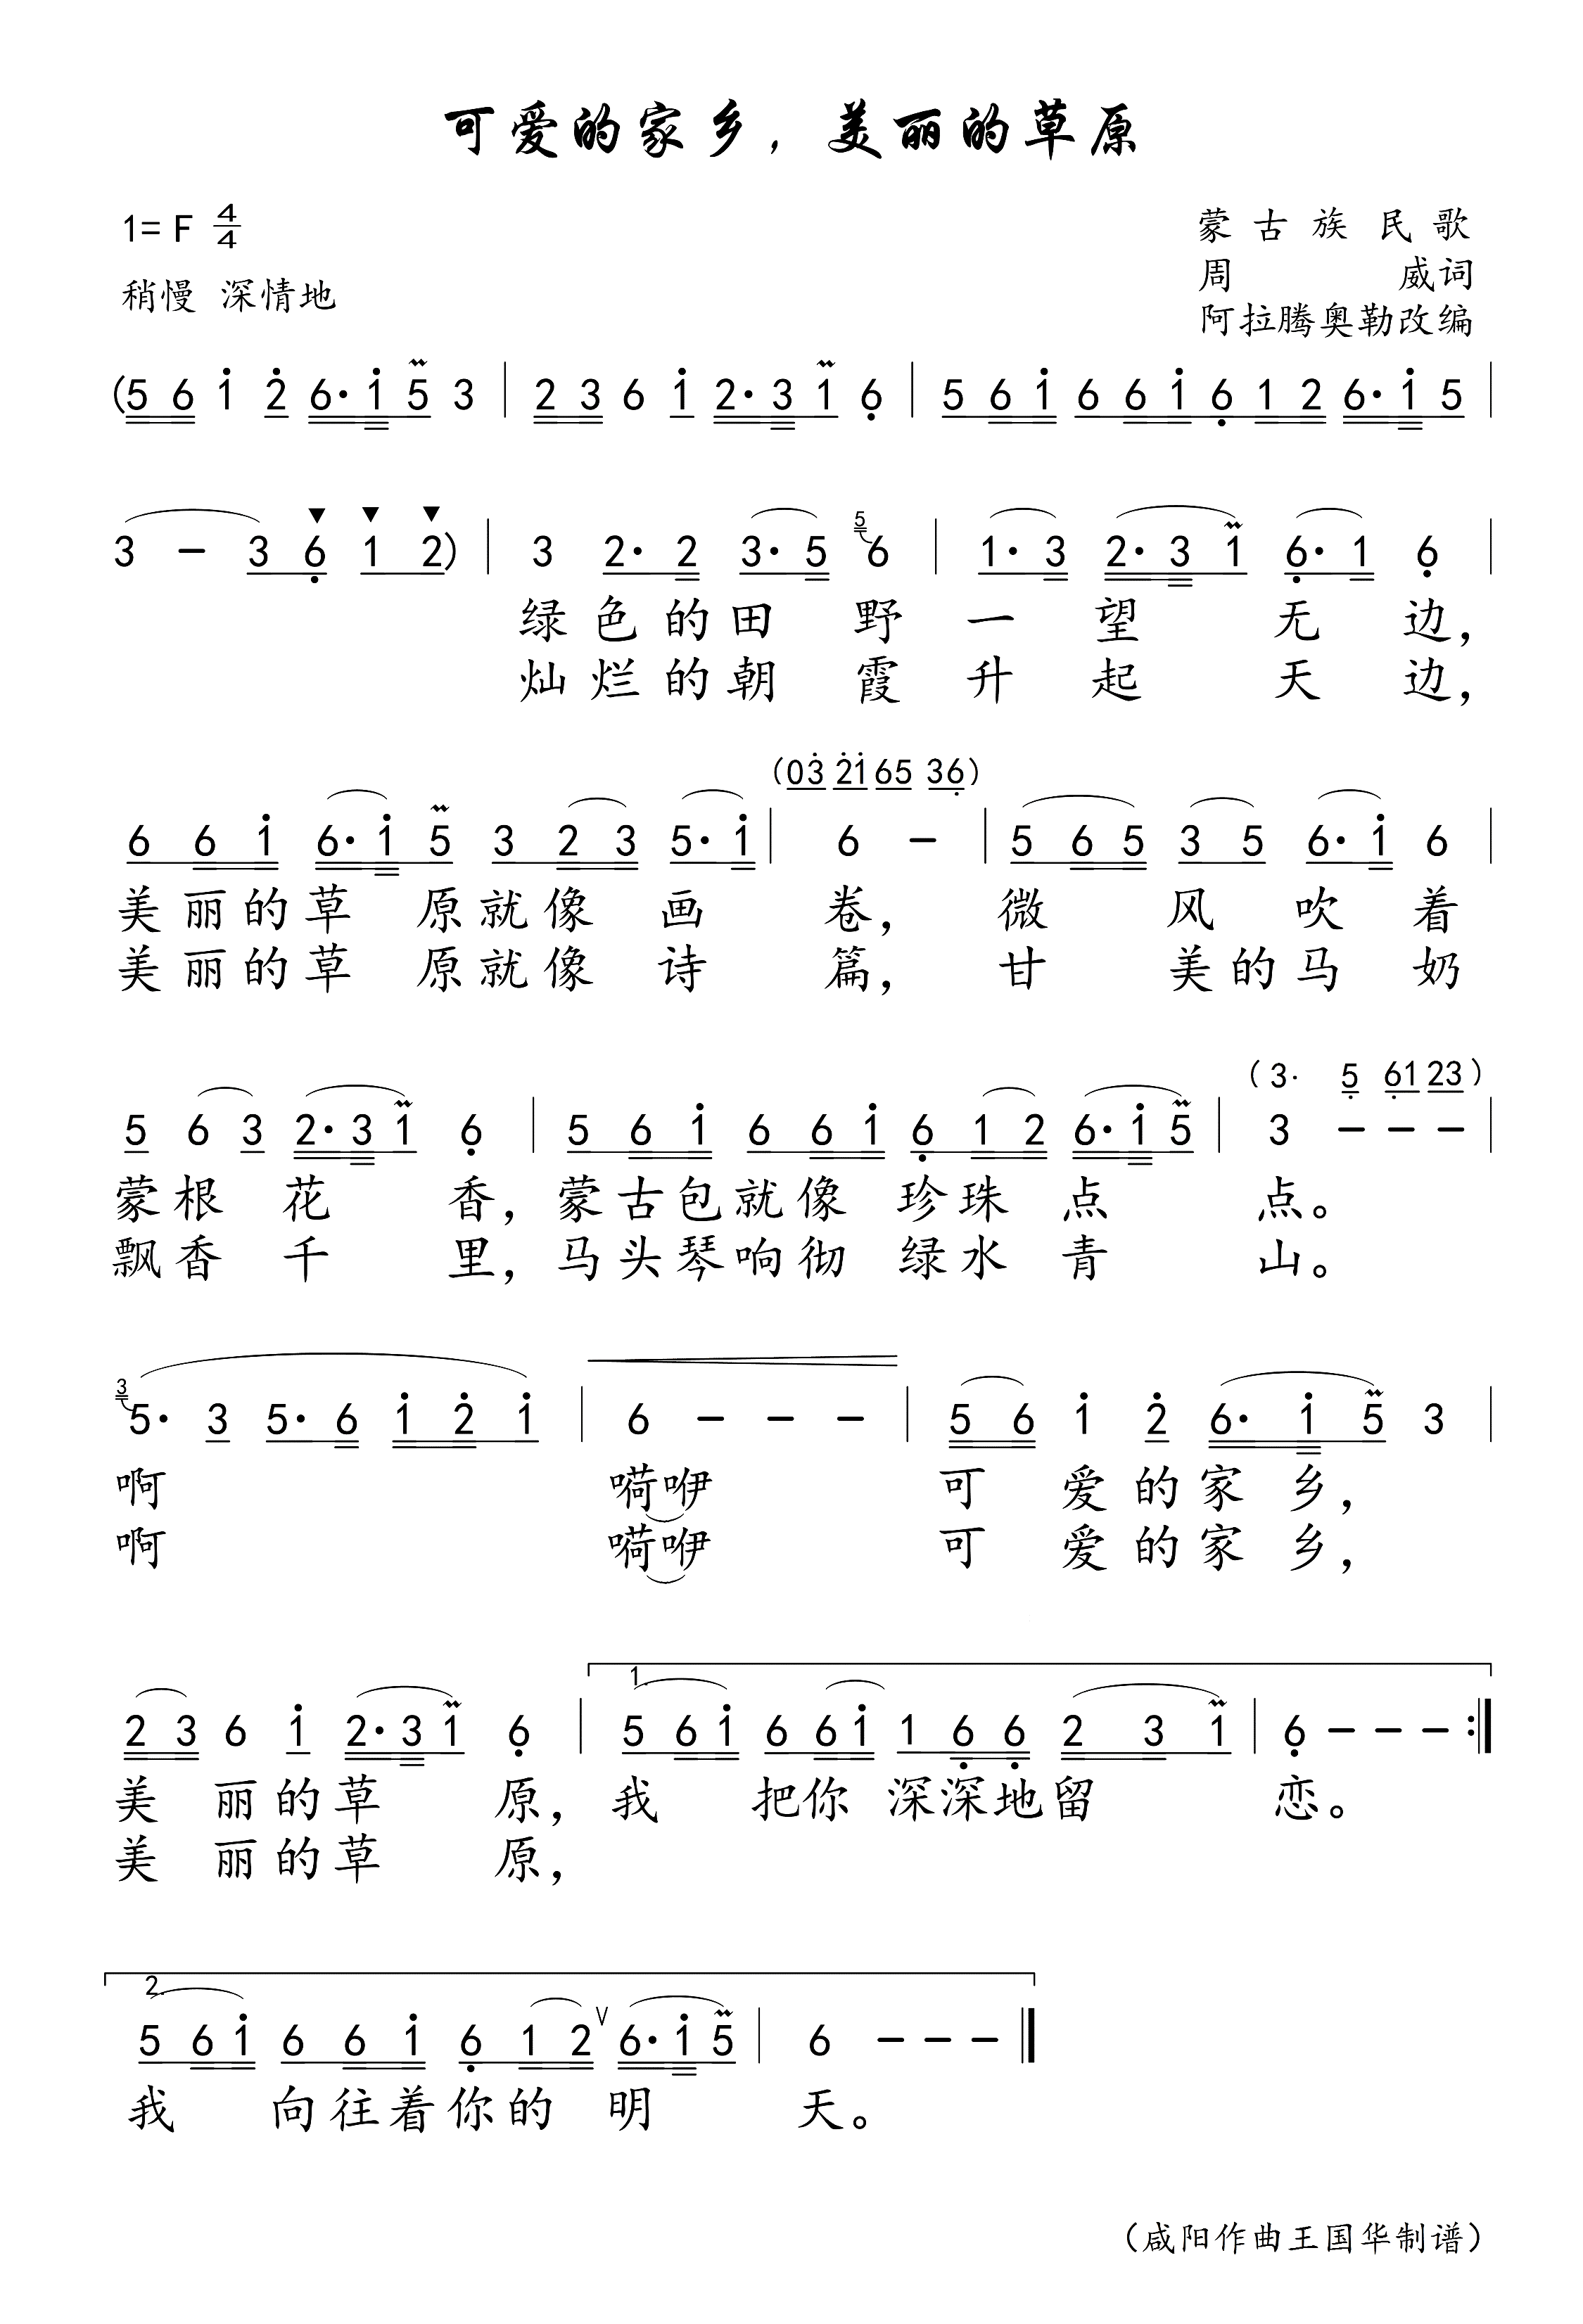 可爱的家乡，美丽的草原
1= F 4/4
蒙古族民歌
周 威词
稍慢 深情地
阿拉腾奥勒改编
(5 6 1 2 6· 1 5 3 | 2 3 6 1 2· 3 1 6 | 5 6 1 6 6 1 6 1 2 6· 1 5 |
3 - 3 6 1 2) | 3 2· 2 3· 5 5 6 | 1· 3 2· 3 1 6· 1 6 |
绿色的田野一望无边，
灿烂的朝霞升起天边，
(03 21 65 36)
6 6 1 6· 1 5 3 2 3 5· 1 | 6 - | 5 6 5 3 5 6· 1 6 |
美丽的草原就像画卷，微风吹着
美丽的草原就像诗篇，甘美的马奶
(3· 5 61 23)
5 6 3 2· 3 1 6 | 5 6 1 6 6 1 6 1 2 6· 1 5 | 3 - - - |
蒙根花香，蒙古包就像珍珠点点。
飘香千里，马头琴响彻绿水青山。
3 5· 3 5· 6 1 2 1 | 6 - - - | 5 6 1 2 6· 1 5 3 |
啊 嗬咿 可爱的家乡，
啊 嗬咿 可爱的家乡，
1.
2 3 6 1 2· 3 1 6 | 5 6 1 6 6 1 1 6 6 2 3 1 | 6 - - - :|
美丽的草原，我把你深深地留恋。
美丽的草原，
2.
5 6 1 6 6 1 6 1 2 V 6· 1 5 | 6 - - - ‖
我向往着你的明天。
（咸阳作曲王国华制谱）